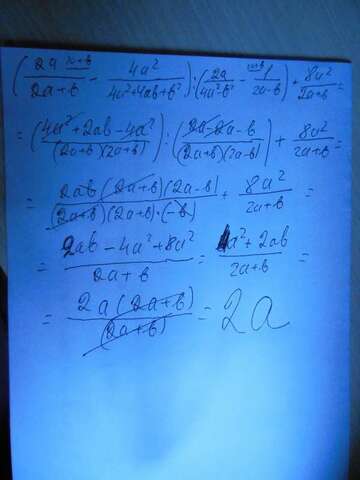 (2a/(2a+b) - 4a²/(4a²+4ab+b²)) : (2a/(4a²-b²) - 1/(2a-b)) + 8a²/(2a+b) =
= (4a²+2ab-4a²)/((2a+b)(2a+b)) : (2a-2a-b)/((2a+b)(2a-b)) + 8a²/(2a+b) =
= 2ab(2a+b)(2a-b)/((2a+b)(2a+b)·(-b)) + 8a²/(2a+b) =
= (2ab-4a²+8a²)/(2a+b) = (4a²+2ab)/(2a+b) =
= 2a(2a+b)/(2a+b) = 2a